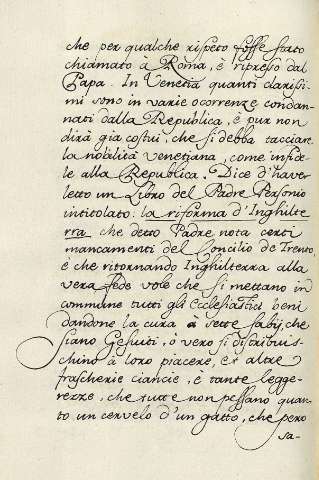 che per qualche rispeto fosse stato
chiamato à Roma, è ripreso dal
Papa. In Venetia quanti clarisi-
mi sono in varie ocorrenze condan-
nati dalla Republica, è pur non
dirà gia costui, che si debba tacciare
la nobilità venetiana, come infide-
le alla Republica. Dice d'haver
letto un Libro del Padre Personio
intitolato: la riforma d'Inghilte
rra che detto Padre nota certi
mancamenti del Concilio de Trento,
è che ritornando Inghilterra alla
vera fede vole che si mettano in
commune tutti gli Ecclesiastici beni
dandone la cura a sette savij, che
siano Gesuiti, ò vero si distribuis-
chino à loro piacere, et altre
frascherie ciancie, è tante legge-
rezze, che tutte non pessano quan-
to un cervelo d'un gatto, che pero
sa-